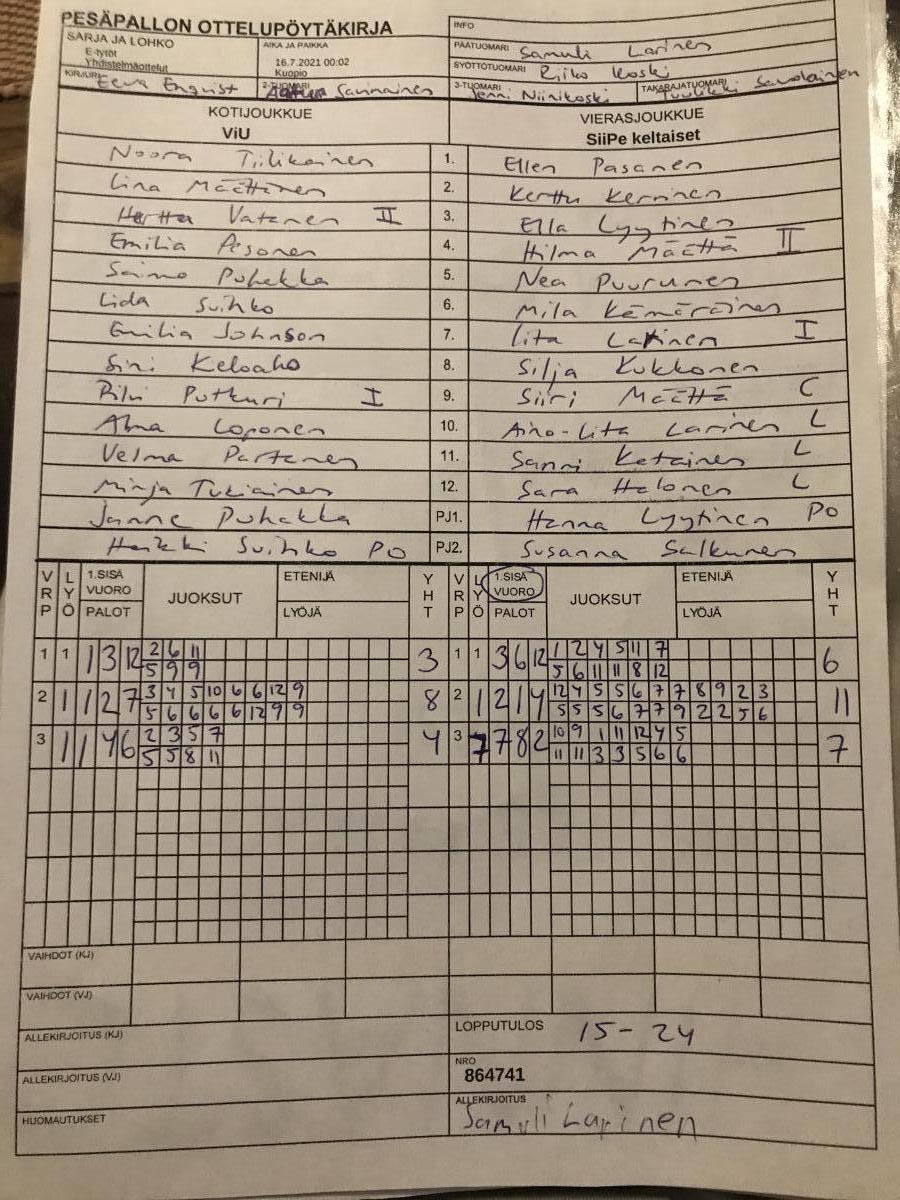 PESÄPALLON OTTELUPÖYTÄKIRJA
INFO
SARJA JA LOHKO
E-tytöt
Yhdistelmäottelut
AIKA JA PAIKKA
16.7.2021 00:02
Kuopio
PÄÄTUOMARI Samuli Larinen
SYÖTTÖTUOMARI Riiko Koski
KIRJURI Eeva Enqvist
2-TUOMARI Savinainen
3-TUOMARI Jenni Niinikoski
TAKARAJATUOMARI Tuulikki Savolainen
KOTIJOUKKUE
ViU
VIERASJOUKKUE
SiiPe keltaiset
Noora Tiilikainen 1. Ellen Pasanen
Iina Määttänen 2. Kerttu Kerninen
Hertta Vatanen II 3. Ella Lyytinen
Emilia Pesonen 4. Hilma Määttä II
Saimo Puhakka 5. Nea Puurunen
Iida Suihko 6. Mila Kämäräinen
Emilia Johnson 7. Iita Lakinen I
Sini Keloaho 8. Silja Kukkonen
Pilvi Putkuri I 9. Siiri Määttä C
Alma Loponen 10. Aino-Iita Larinen L
Velma Partanen 11. Sanni Ketainen L
Minja Tukiainen 12. Sara Halonen L
Janne Puhakka PJ1. Hanna Lyytinen PO
Heikki Suihko PO PJ2. Susanna Salkunen
VRP LYÖ 1.SISÄ VUORO PALOT JUOKSUT ETENIJÄ LYÖJÄ YHT VRP LYÖ 1.SISÄ VUORO PALOT JUOKSUT ETENIJÄ LYÖJÄ YHT
1 1 1 3 12 2 6 11 3 1 1 3 6 12 1 2 4 5 11 7 6
5 9 9 5 6 11 11 8 12
2 1 1 2 7 3 4 5 10 6 6 12 9 8 2 1 2 1 4 12 4 5 5 6 7 7 8 9 2 3 11
5 6 6 6 6 12 9 9 5 5 5 6 7 7 9 2 2 5 6
3 1 1 4 6 2 3 5 7 4 3 7 7 8 2 10 9 1 11 12 4 5 7
5 5 8 11 11 11 3 3 5 6 6
VAIHDOT (KJ)
VAIHDOT (VJ)
ALLEKIRJOITUS (KJ)
LOPPUTULOS 15-24
ALLEKIRJOITUS (VJ)
NRO
864741
HUOMAUTUKSET
ALLEKIRJOITUS
Samuli Larinen